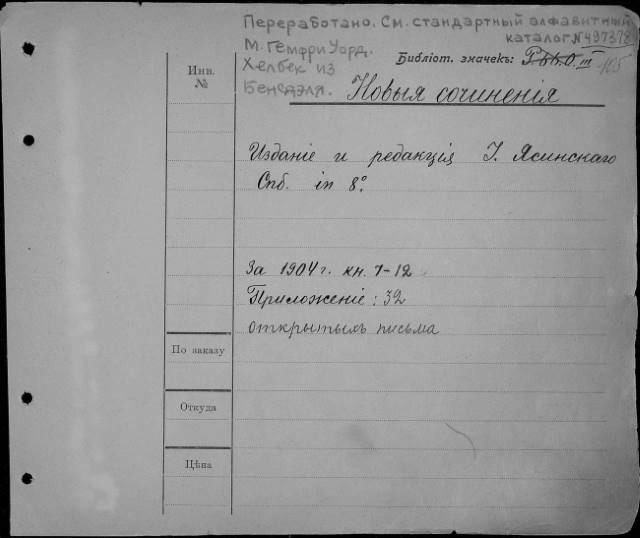 Переработано. См. стандартный алфавитный
каталог N497378
М. Гемфри Уорд.
Хелбек из
Бенсдэля.
Библіот. значекъ:
Новыя сочиненія
Инв.
№
Изданіе и редакція I. Ясинскаго
Спб. in 8°.
За 1904 г. кн. 1-12
Приложеніе: 32
открытыхъ письма
По заказу
Откуда
Цѣна